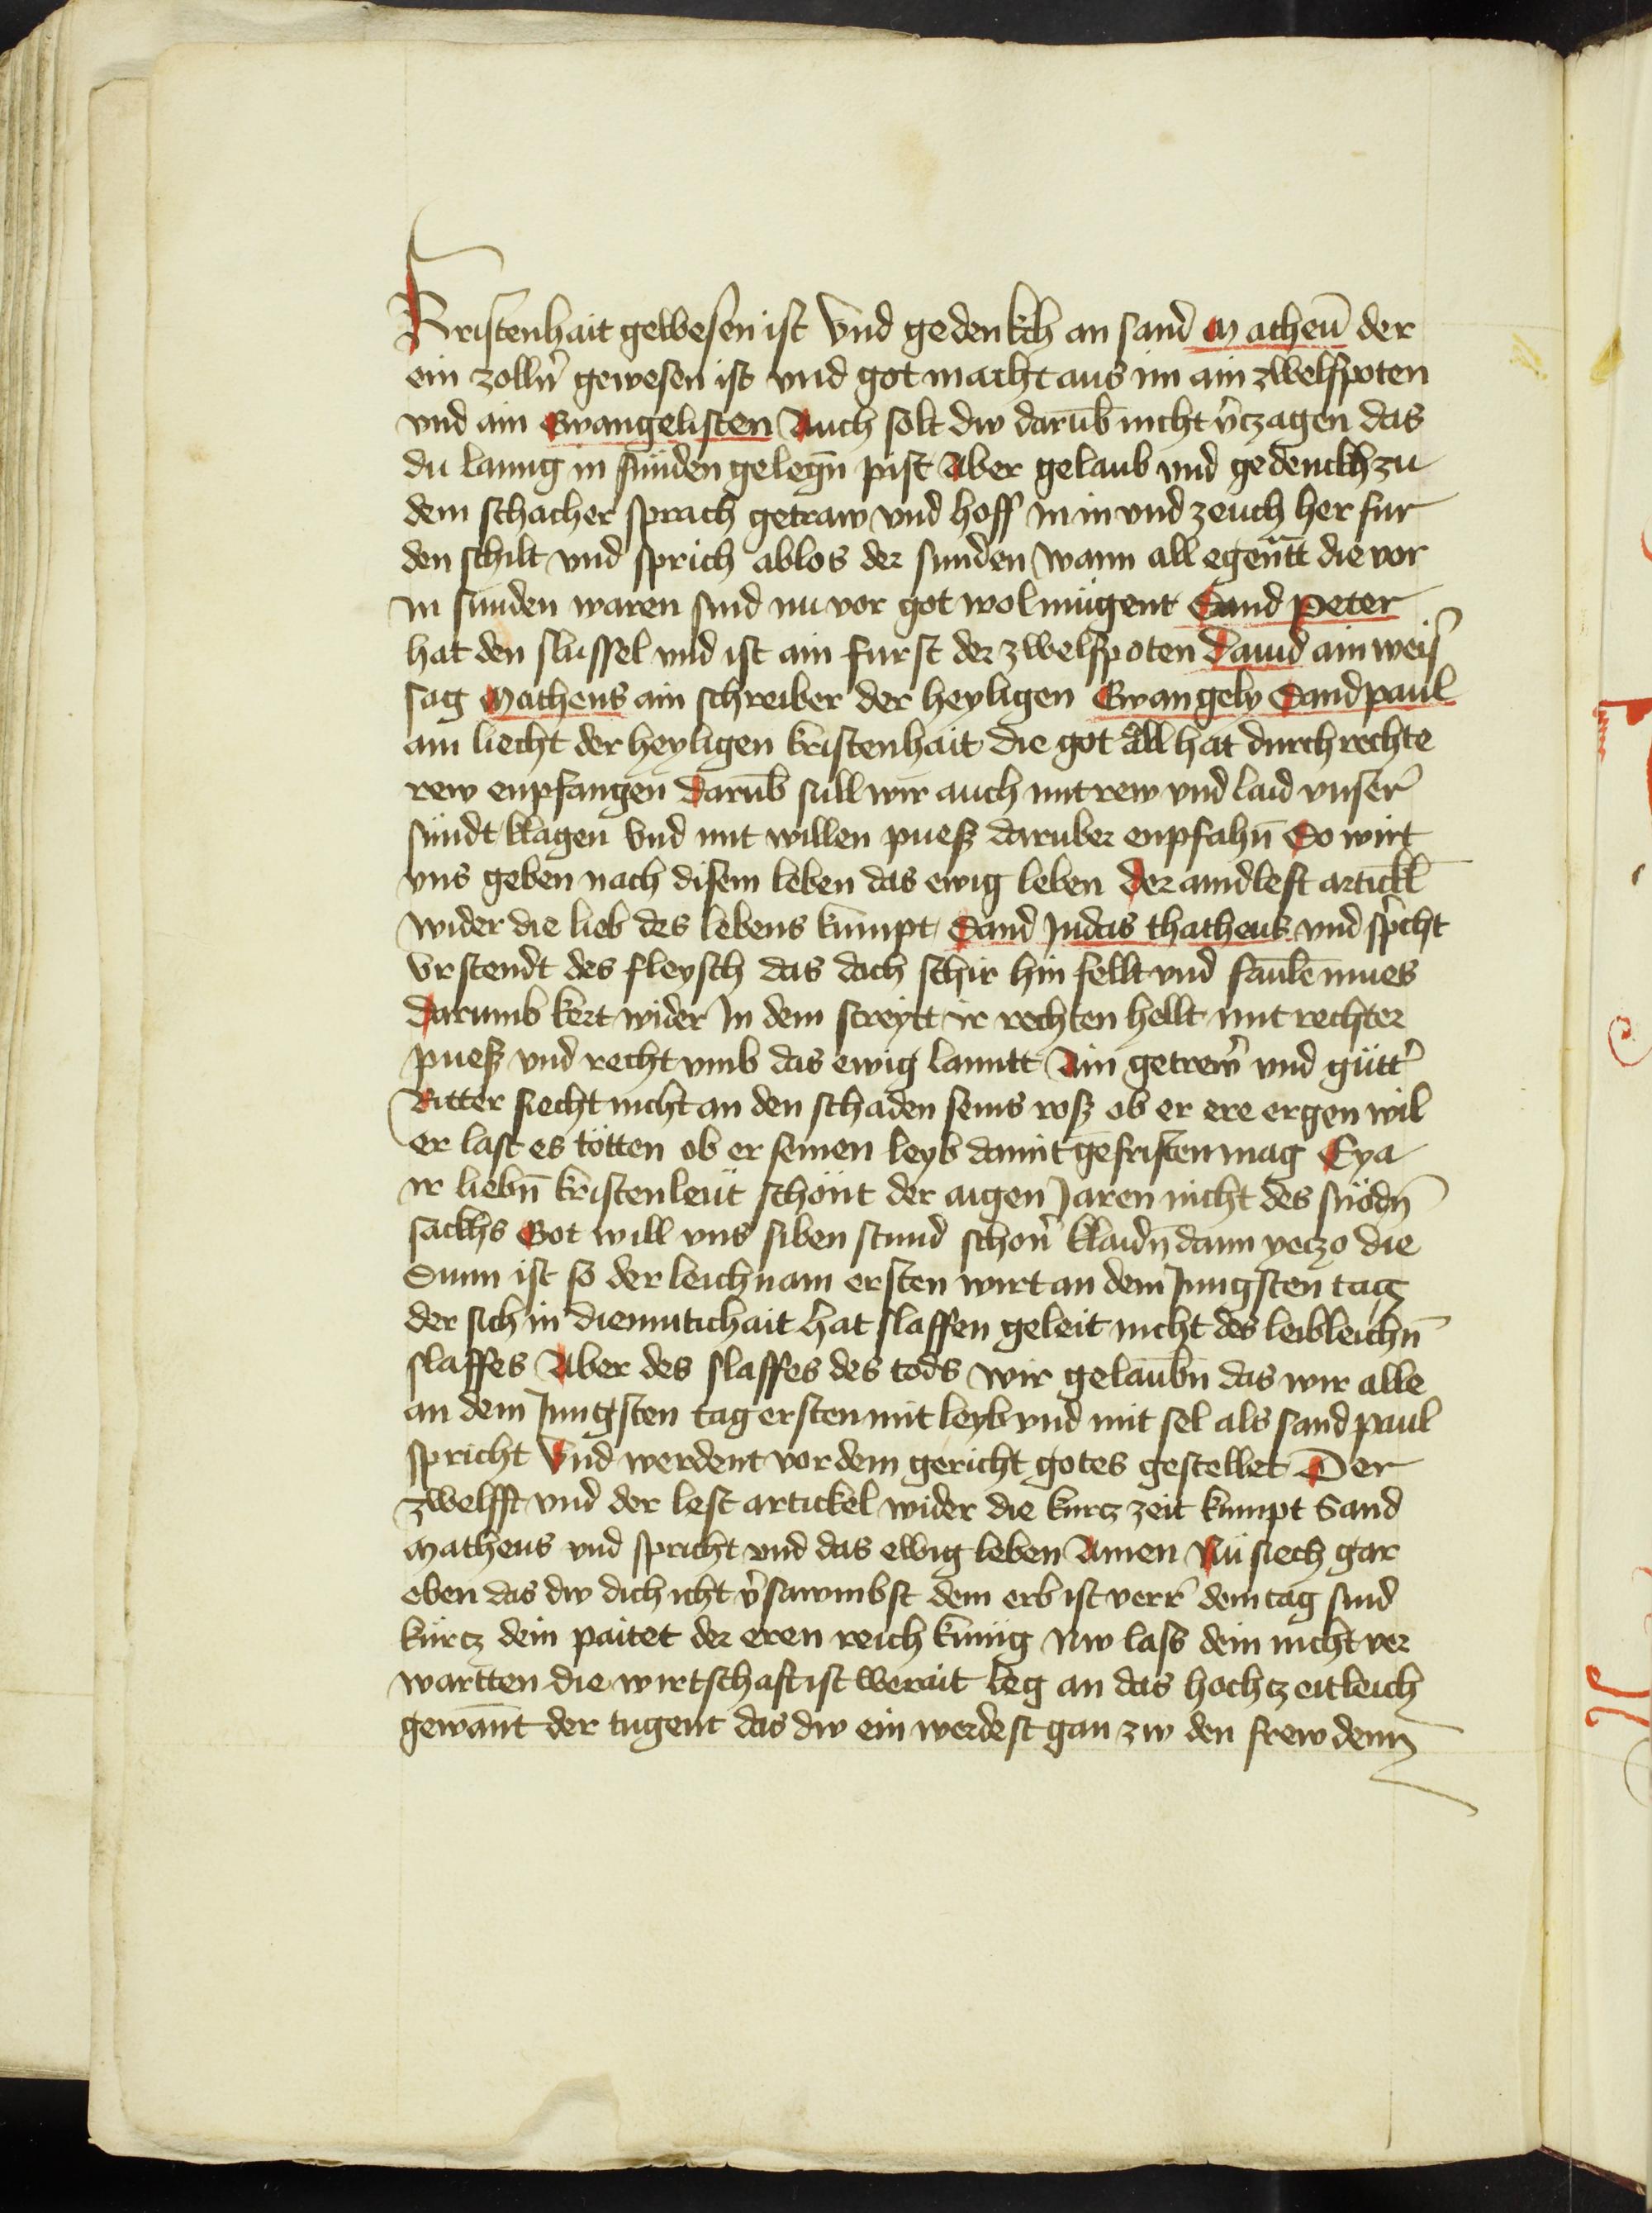 Kristenhait gewesen ist Vnd gedenkch an sand Matheū der
ein zollnˀ gewesen ist vnd got macht aus im ain zwelfpoten
vnd ain Ewangelisten Auch solt dw darūb nicht v̓czagen das
du lanng in sünden gelegn̄ pist Aber gelaub vnd gedenckh zu
dem schacher sprach getraw vnd hoff in in vnd zeuch her fur
den schilt vnd sprich ablos der sunden wann all egen̄tt die vor
in sunden waren sind nu vor got wol mügent Sand Peter
hat den slussel vnd ist ain furst der zwelfpoten Dauid ain weis
sag Matheus ain schreiber der heyligen Ewangely Sand paul
ain liecht der heyligen kristenhait die got all hat durch rechte
rew enpfangen Darūb süll wir auch mit rew vnd laid vnser
sündt klagen Vnd mit willen puesz daruber enpfahn̄ So wirt
vns geben nach disem leben das ewig leben Der aindlest artickl
wider die lieb des lebens kumpt Sand Judas thatheus vnd sprˀcht
Vrstendt des fleysch das doch schir hin fellt vnd faulē mues
Darumb kert wider In dem streytt ir rechten hellt mit rechter
puesz vnd recht vmb das ewig lanntt Ain getrewˀ vnd güttˀ
Ritter siecht nicht an den schaden seins rosz ob er ere ergen wil
er last es tötten ob er seinen leyb damit gefristen mag Eya
ir liebn̄ kristenleüt schönt der aigen Jaren nicht des snödn̄
sackhs Got will vns siben stund schonˀ klaidn̄ dann yeczo die
Sunn ist so der leichnam ersten wirt an dem Jungsten tag
der sich in diemutichait hat slaffen geleit nicht des leibleichn̄
slaffes Aber des slaffes des tods wir gelaubn̄ das wir alle
an dem Jungsten tag ersten mit leyb vnd mit sel als sand paul
spricht Vnd werdent vor dem gericht gotes gestellet Der
zwelfft vnd der lest artickel wider die kurcz zeit kumpt Sand
Matheus vnd spricht vnd das ewig leben Amen Nü siech gar
eben das dw dich icht v̓sawmbst dein erb ist verr dein tag sind
kürcz dein paitet der eren reich künig Nw lass dein nicht ver
wartten die wirtschaft ist werait leg an das hochczeitleich
gewant der tugent das dw ein werdest gan zw den frewdenn